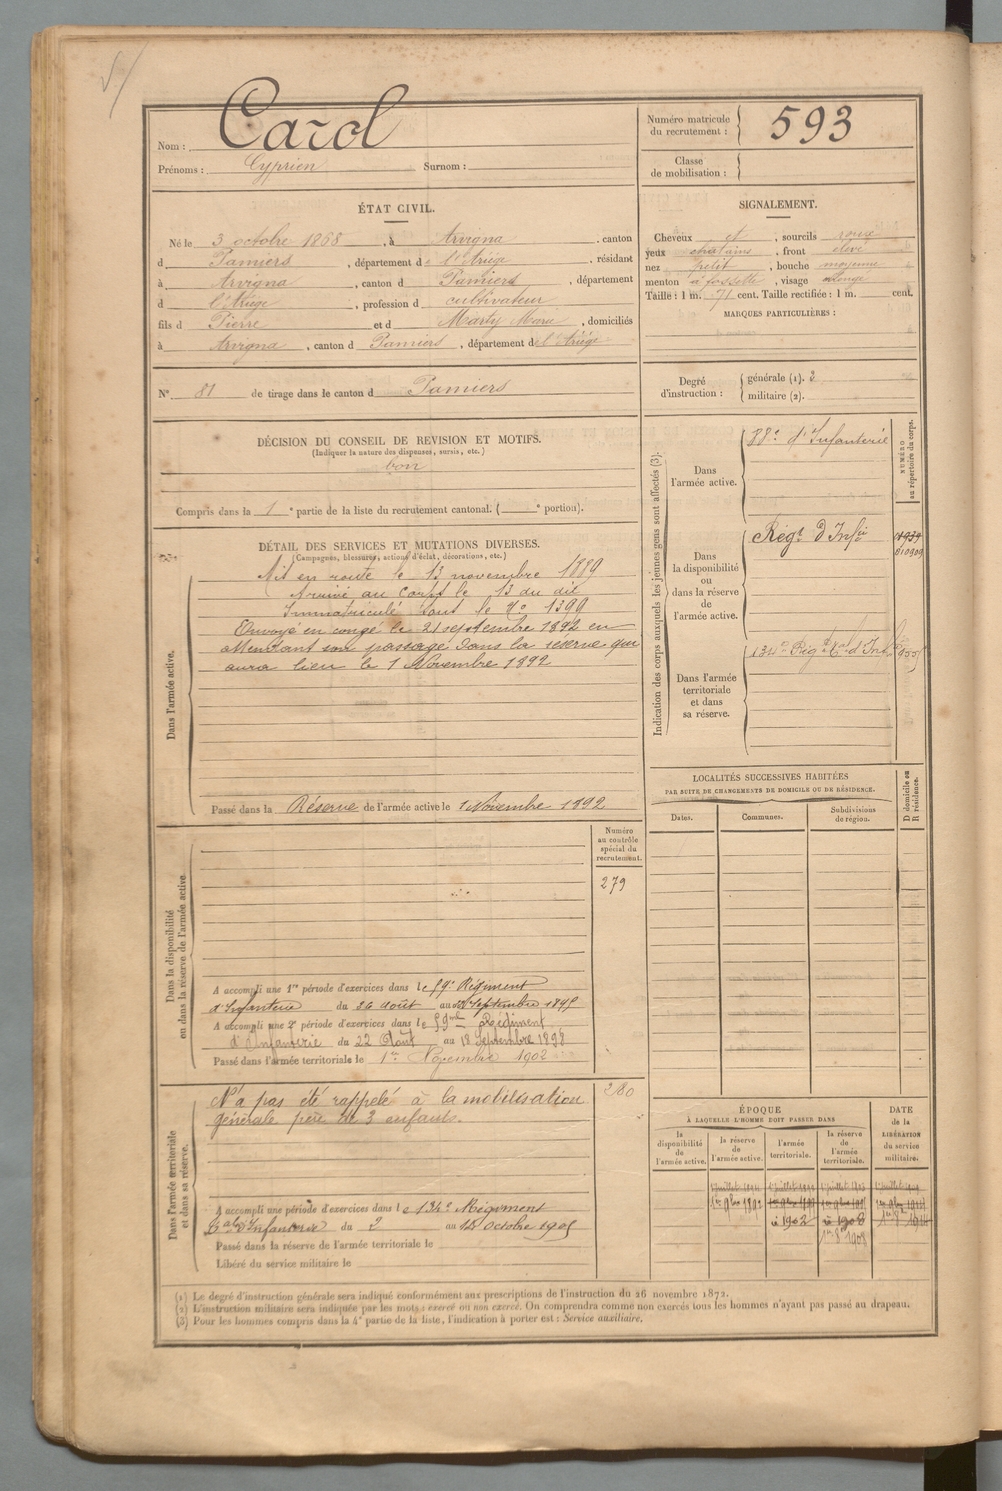 Nom : Carol
Prénoms : Cyprien Surnom :
Numéro matricule du recrutement : 593
Classe de mobilisation :
ÉTAT CIVIL.
Né le 3 octobre 1868, à Arvigna, canton
d Pamiers, département de l'Ariège, résidant
à Arvigna, canton d Pamiers, département
d l'Ariège, profession d cultivateur
fils d Pierre et d Marty Marie, domiciliés
à Arvigna, canton d Pamiers, département de l'Ariège
N° 81 de tirage dans le canton d Pamiers
SIGNALEMENT.
Cheveux et, sourcils roux
yeux chatains, front élevé
nez petit, bouche moyenne
menton à fossette, visage allongé
Taille : 1 m. 71 cent. Taille rectifiée : 1 m. cent.
MARQUES PARTICULIÈRES :
Degré d'instruction : générale (1). 3
militaire (2).
DÉCISION DU CONSEIL DE REVISION ET MOTIFS.
(Indiquer la nature des dispenses, sursis, etc.)
bon
Compris dans la 1e partie de la liste du recrutement cantonal. (e portion).
DÉTAIL DES SERVICES ET MUTATIONS DIVERSES.
(Campagnes, blessures, actions d'éclat, décorations, etc.)
Dans l'armée active.
Mis en route le 13 novembre 1889
Arrivé au Corps le 13 du dit
Immatriculé sous le No 1399
Envoyé en congé le 21 septembre 1892 en
attendant son passage dans la réserve qui
aura lieu le 1 Novembre 1892
Passé dans la Réserve de l'armée active le 1 Novembre 1892
Indication des corps auxquels les jeunes gens sont affectés (3).
NUMÉRO au répertoire du corps.
Dans l'armée active.
88e d'Infanterie
Dans la disponibilité ou dans la réserve de l'armée active.
Régt d'Infie
Dans l'armée territoriale et dans sa réserve.
134e Régt tal d'Infie
LOCALITÉS SUCCESSIVES HABITÉES
PAR SUITE DE CHANGEMENTS DE DOMICILE OU DE RÉSIDENCE.
Dates.
Communes.
Subdivisions de région.
D domicile ou R résidence.
Dans la disponibilité ou dans la réserve de l'armée active.
Numéro au contrôle spécial du recrutement.
279
A accompli une 1re période d'exercices dans le 59e Régiment
d'Infanterie du 26 août au Septembre 1895
A accompli une 2e période d'exercices dans le 59me Régiment
d'Infanterie du 22 Août au 18 Septembre 1898
Passé dans l'armée territoriale le 1er Novembre 1902
Dans l'armée territoriale et dans sa réserve.
280
N'a pas été rappelé à la mobilisation
générale père de 3 enfants.
A accompli une période d'exercices dans le 134e Régiment
tal d'Infanterie du 2 au Octobre 1905
Passé dans la réserve de l'armée territoriale le
Libéré du service militaire le
ÉPOQUE
À LAQUELLE L'HOMME DOIT PASSER DANS
la disponibilité de l'armée active.
la réserve de l'armée active.
l'armée territoriale.
la réserve de l'armée territoriale.
DATE de la LIBÉRATION du service militaire.
1er 9bre 1892
à 1902
à 1908
(1) Le degré d'instruction générale sera indiqué conformément aux prescriptions de l'instruction du 26 novembre 1872.
(2) L'instruction militaire sera indiquée par les mots : exercé ou non exercé. On comprendra comme non exercés tous les hommes n'ayant pas passé au drapeau.
(3) Pour les hommes compris dans la 4e partie de la liste, l'indication à porter est : Service auxiliaire.